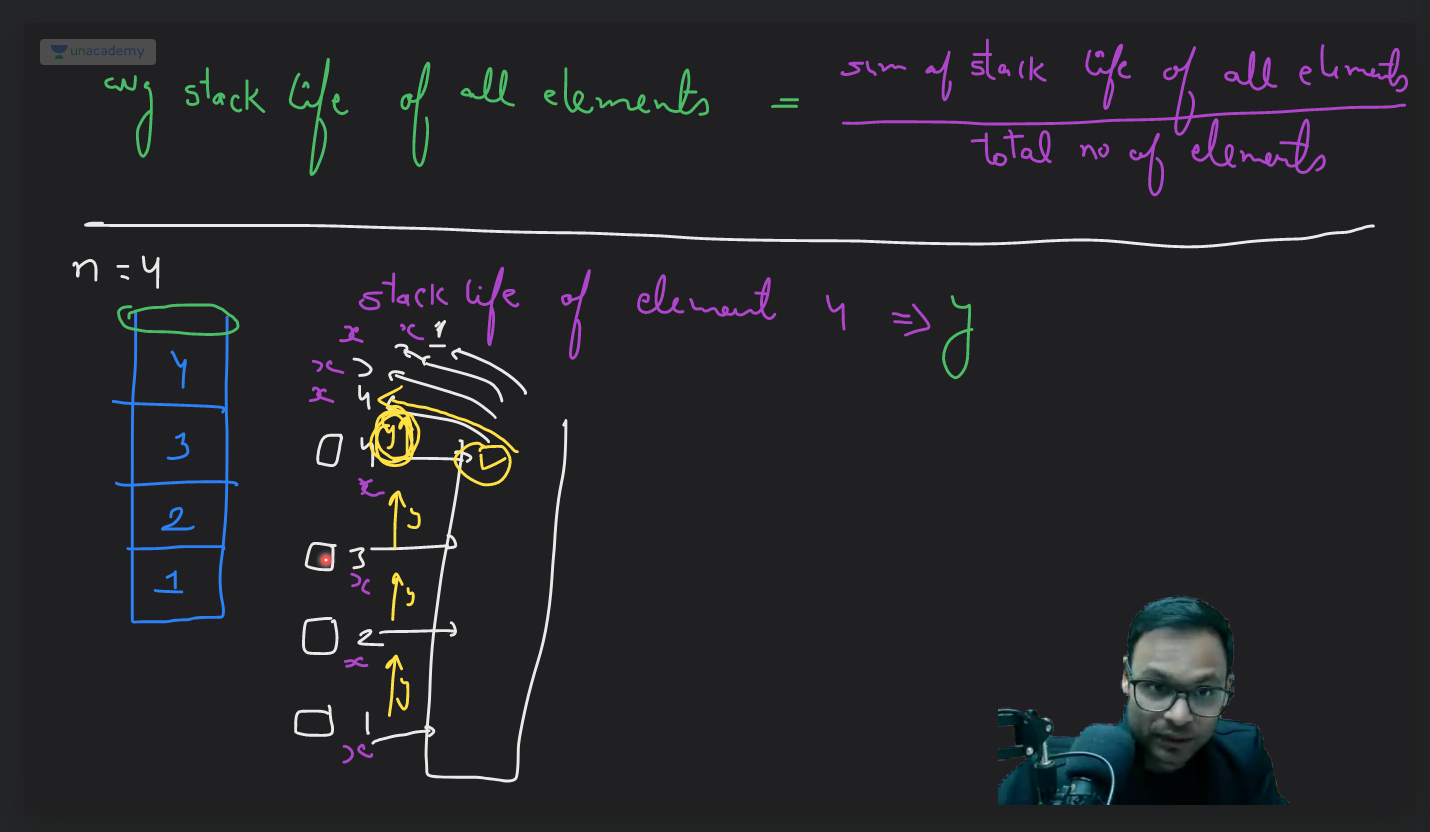 unacademy
avg stack life of all elements = sum of stack life of all elements
total no of elements
n = 4
stack life of element 4 => y
x x 1
x 3
x 4
4
3
2
1
4 y
x
y
3
x
y
2
x
y
1
x